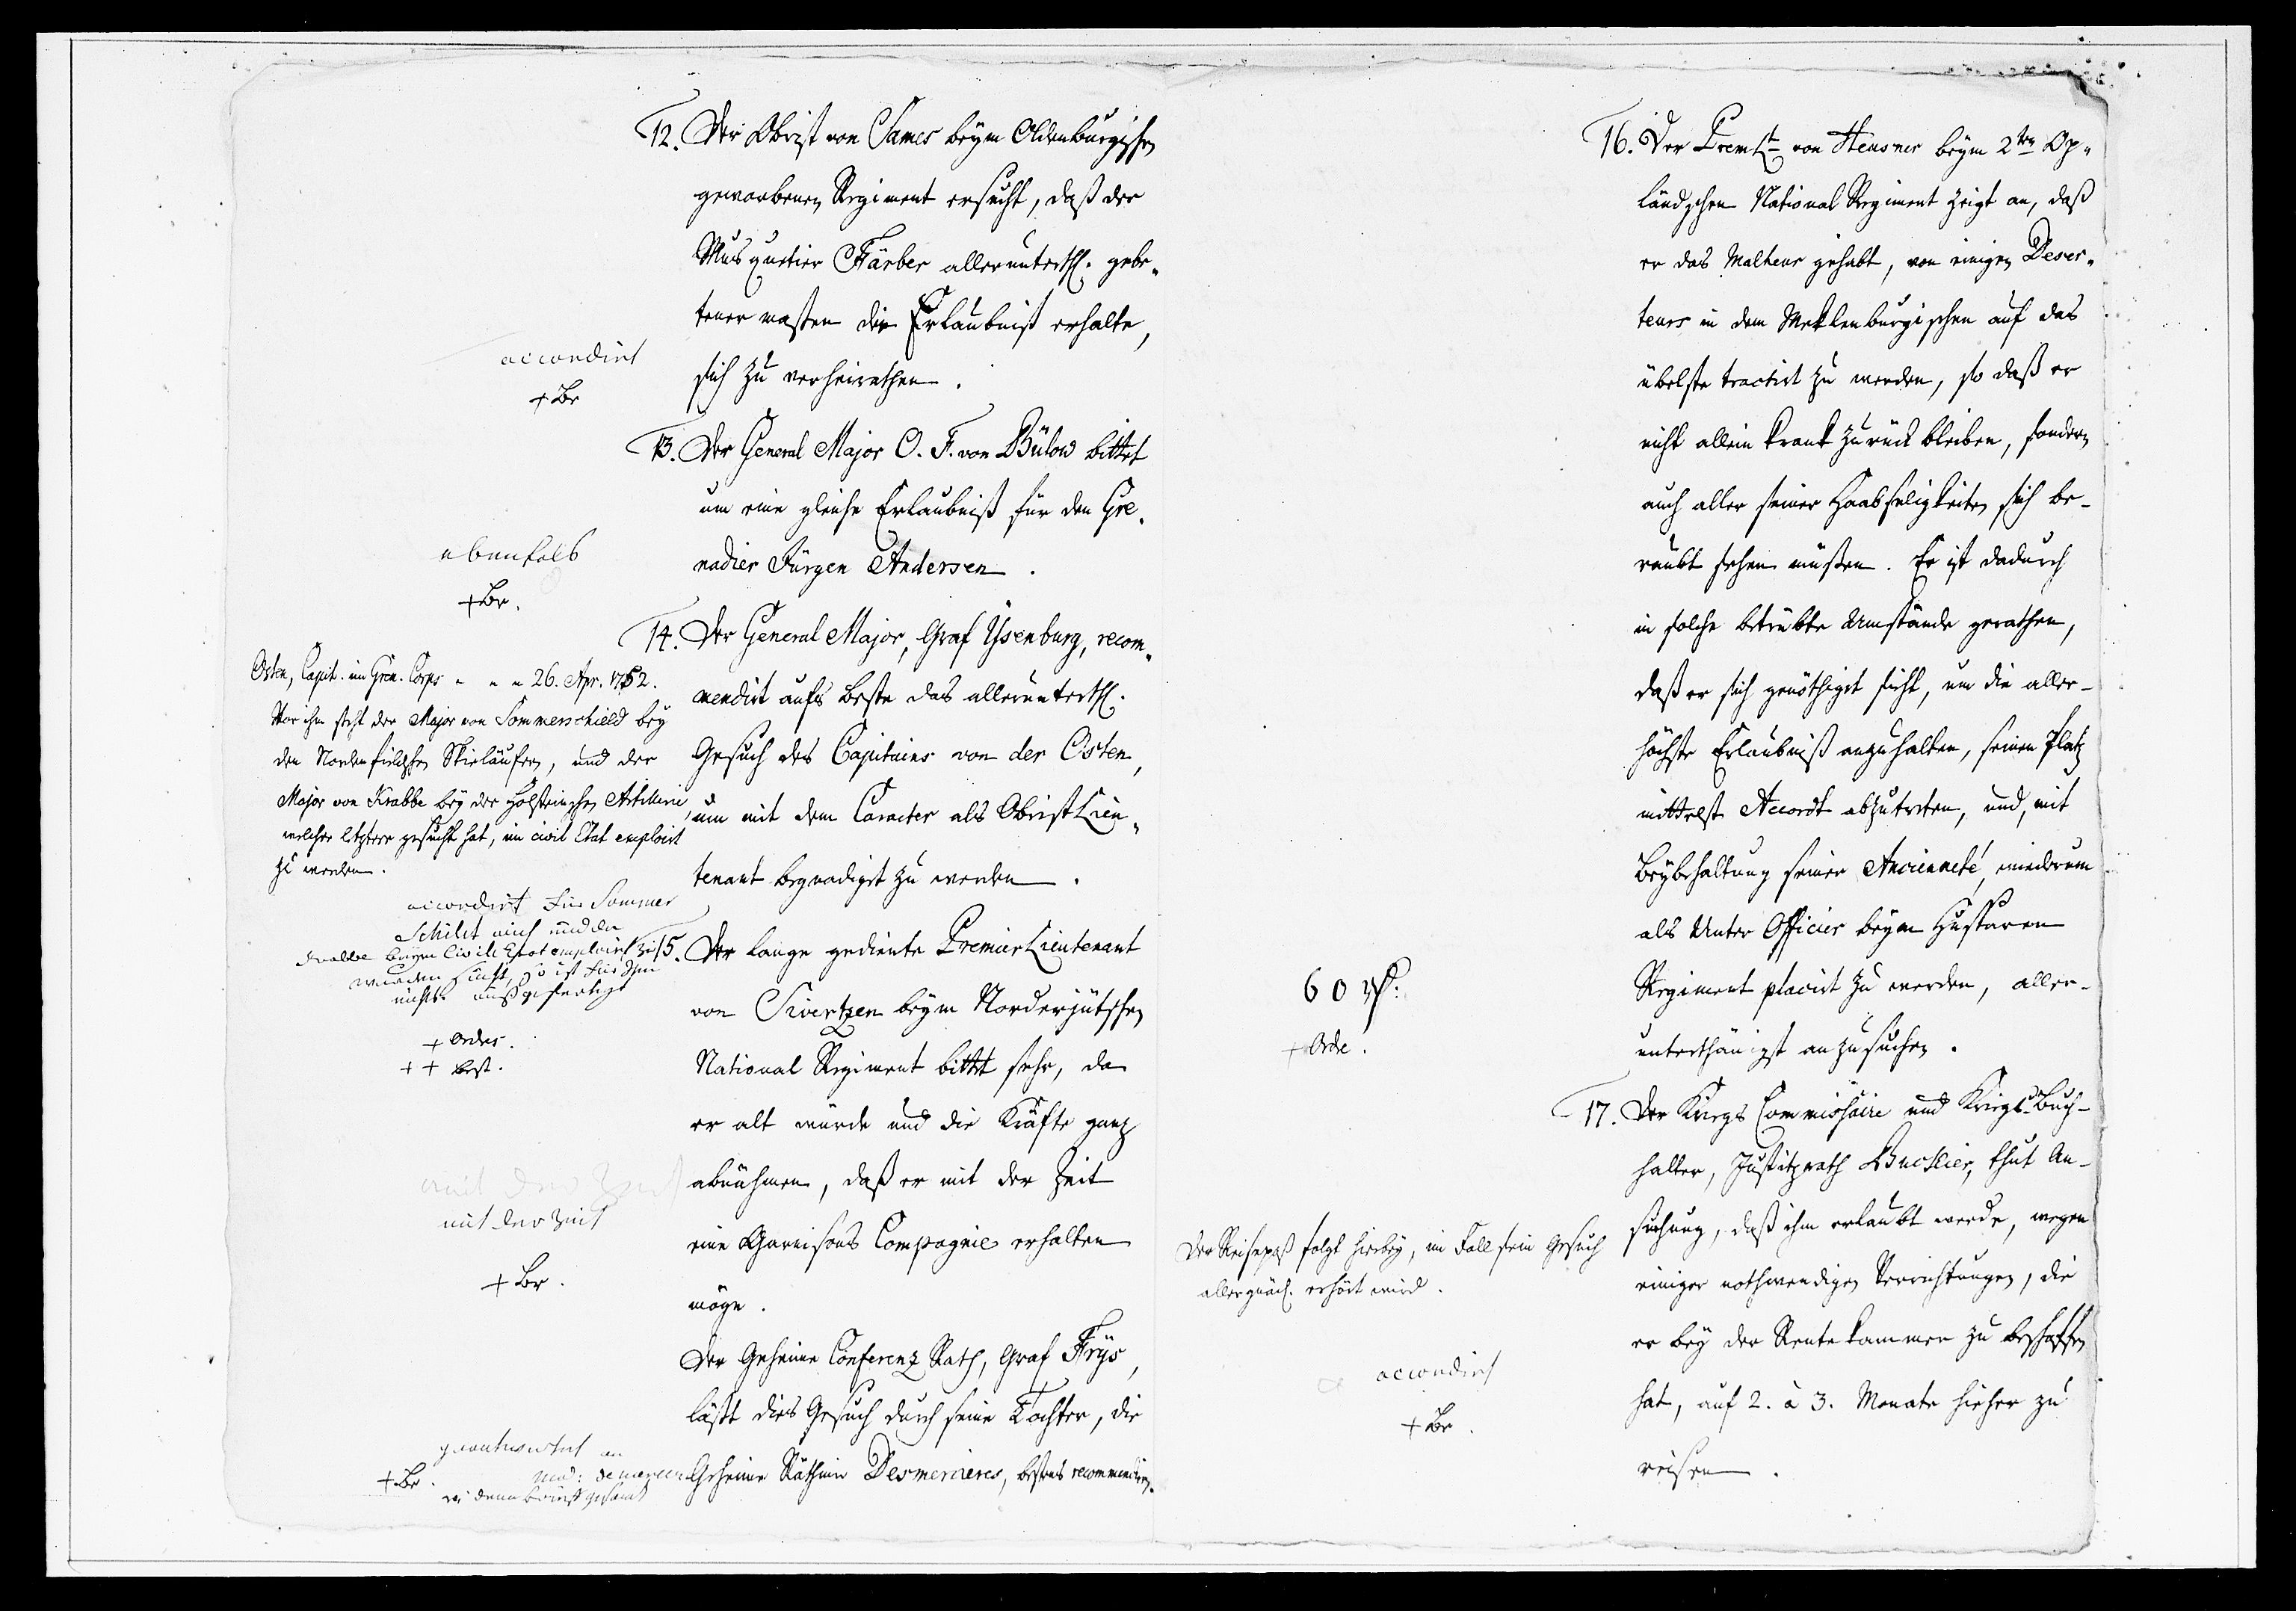 12. Der Obrist von Sames beym Oldenburgischen
geworbenen Regiment ersucht, daß der
Musquetier Färber allerunterth. gebe„
tener maßen die Erlaubniß erhalte,
sich zu verheirathen.
accordirt
+ Br
13. Der General Major C. F. von Bülow bittet
um eine gleiche Erlaubniß für den Gre„
nadier Jürgen Andersen.
ebenfals
+ Br.
14. Der General Major, Graf Ysenburg, recom„
mendirt aufs beste das allerunterth.
Gesuch des Capitains von der Osten,
um mit dem Caracter als Obrist Lieu„
tenant begnadigt zu werden.
Osten, Capit. im Gren. Corps „ „ „ 26. Apr. 1752.
Vor ihm steht der Major von Sommerschield bey
den Nordenfieldschen Skieläufern, und der
Major von Krabbe bey der Holsteinschen Artillerie,
welcher letztere gesucht hat, im civil Etat emploirt
zu werden.
accordirt für Sommer
Schildt auch und da
Krabbe beym Civile Etat emploirt zu
werden sucht, so ist für Ihm
nichts außgefertigt
+ Ordres.
+ + Best.
15. Der lange gediente Premier Lieutenant
von Sivertzen beym Norderjütschen
National Regiment bittet sehr, da
er alt würde und die Kräfte ganz
abnähmen, daß er mit der Zeit
eine Garnisons Compagnie erhalten
möge.
mit der Zeit
mit der Zeit
+ Br.
Der Geheime Conferenz Rath, Graf Frys,
läßt dies Gesuch durch seine Tochter, die
Geheime Räthin Desmercieres, bestens recommendiren.
geantwortet an
+ Br. Mad:
16. Der Prem Lt von Heusner beym 2ten Op„
ländschen National Regiment zeigt an, daß
er das Malheur gehabt, von einigen Deser„
teurs in dem Meklenburgischen auf das
übelste tractirt zu werden, so daß er
nicht allein krank zurück bleiben, sondern
auch aller seiner Haabseligkeiten sich be-
raubt sehen müßen. Er ist dadurch
in solche betrübte Umstände gerathen,
daß er sich genöthiget sieht, um die aller-
höchste Erlaubniß anzuhalten, seinen Platz
mittelst Accordt abzutreten, und, mit
Beybehaltung seiner Ancienneté, wiederum
als Unter Officier beym Husaren
Regiment placirt zu werden, aller-
unterthänigst anzusuchen.
60 rh:
+ Ordr.
17. Der Kriegs Commissaire und Kriegs-Buch-
halter, Justitzrath Buchlier, thut An-
suchung, daß ihm erlaubt werde, wegen
einiger nothwendigen Verrichtungen, die
er bey der Rentekammer zu beschaffen
hat, auf 2. à 3. Monate hieher zu
reisen.
Der Reisepaß folgt hierbey, im Fall sein Gesuch
allergnäd. erhört wird.
accordirt
+ Br.